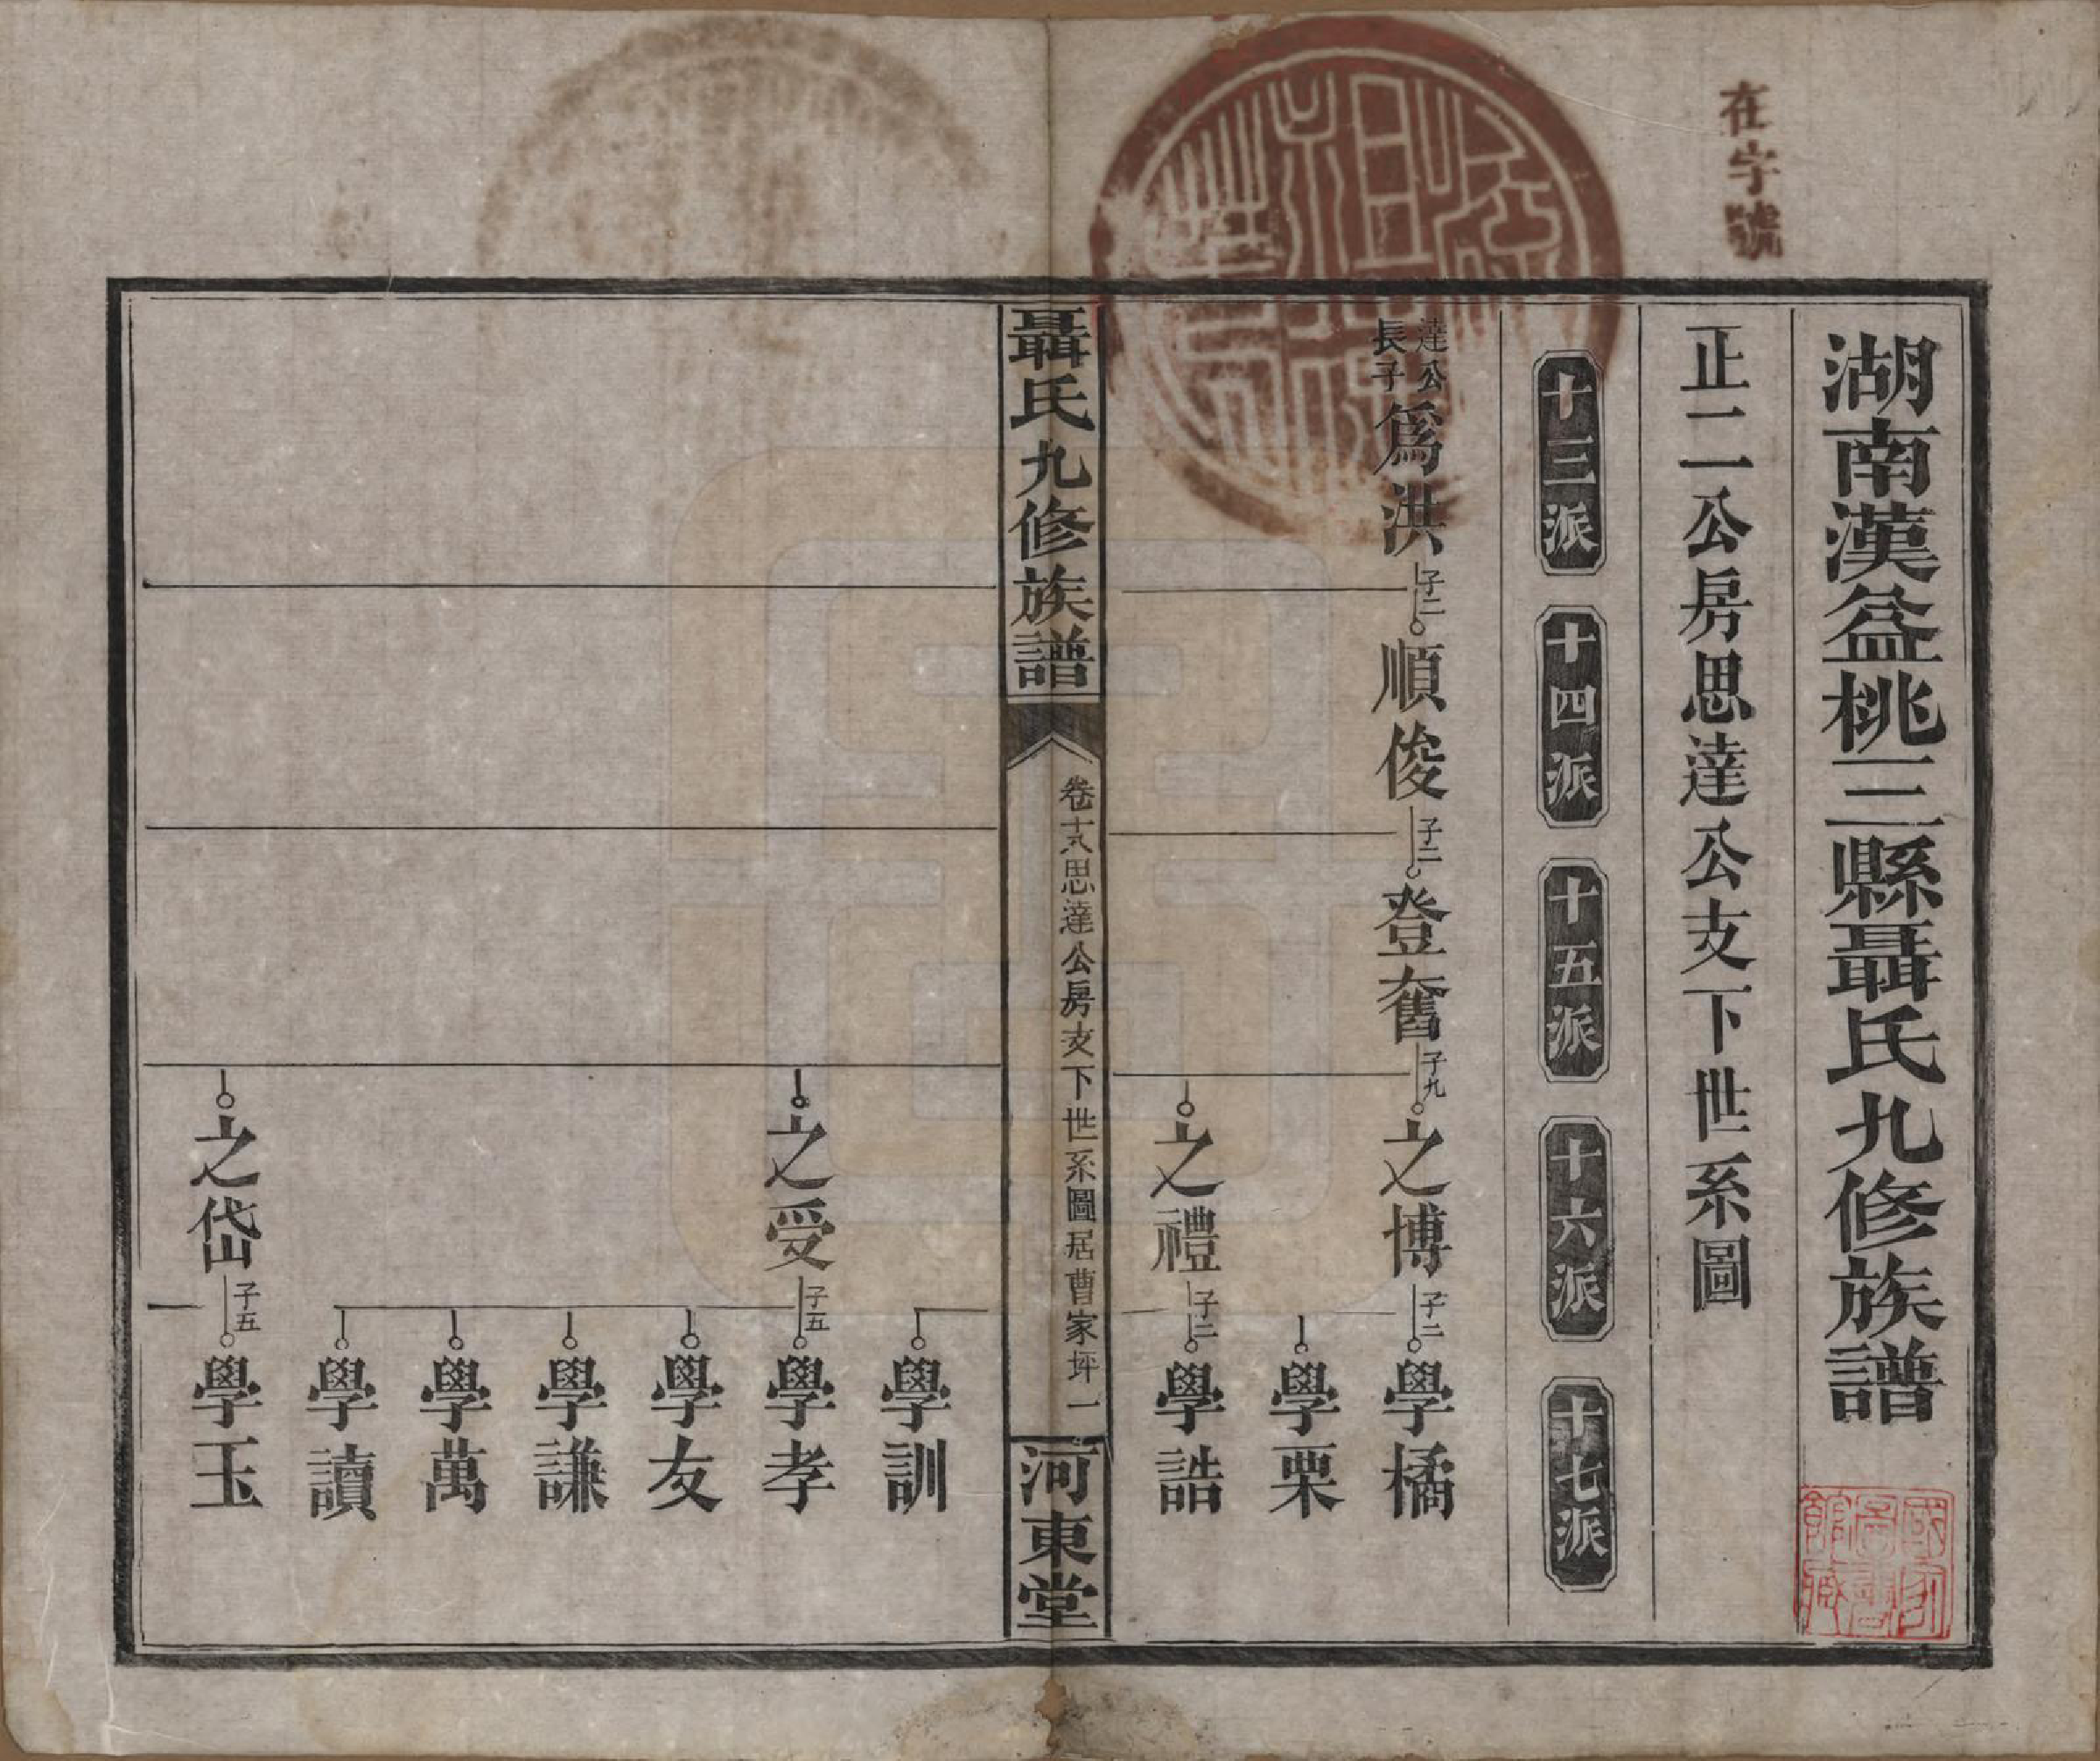 在字號
湖南漢益桃三縣聶氏九修族譜
正二公房思達公支下世系圖
十三派
十四派
十五派
十六派
十七派
達公
長子
爲洪
子二
順俊
子二
登奮
子九
之博
子二
學橘
學栗
之禮
子二
學誥
聶氏九修族譜
卷十八思達公房支下世系圖居曹家坪
一
河東堂
學訓
之受
子五
學孝
學友
學謙
學萬
學讀
之岱
子五
學玉
國家
圖書
館藏